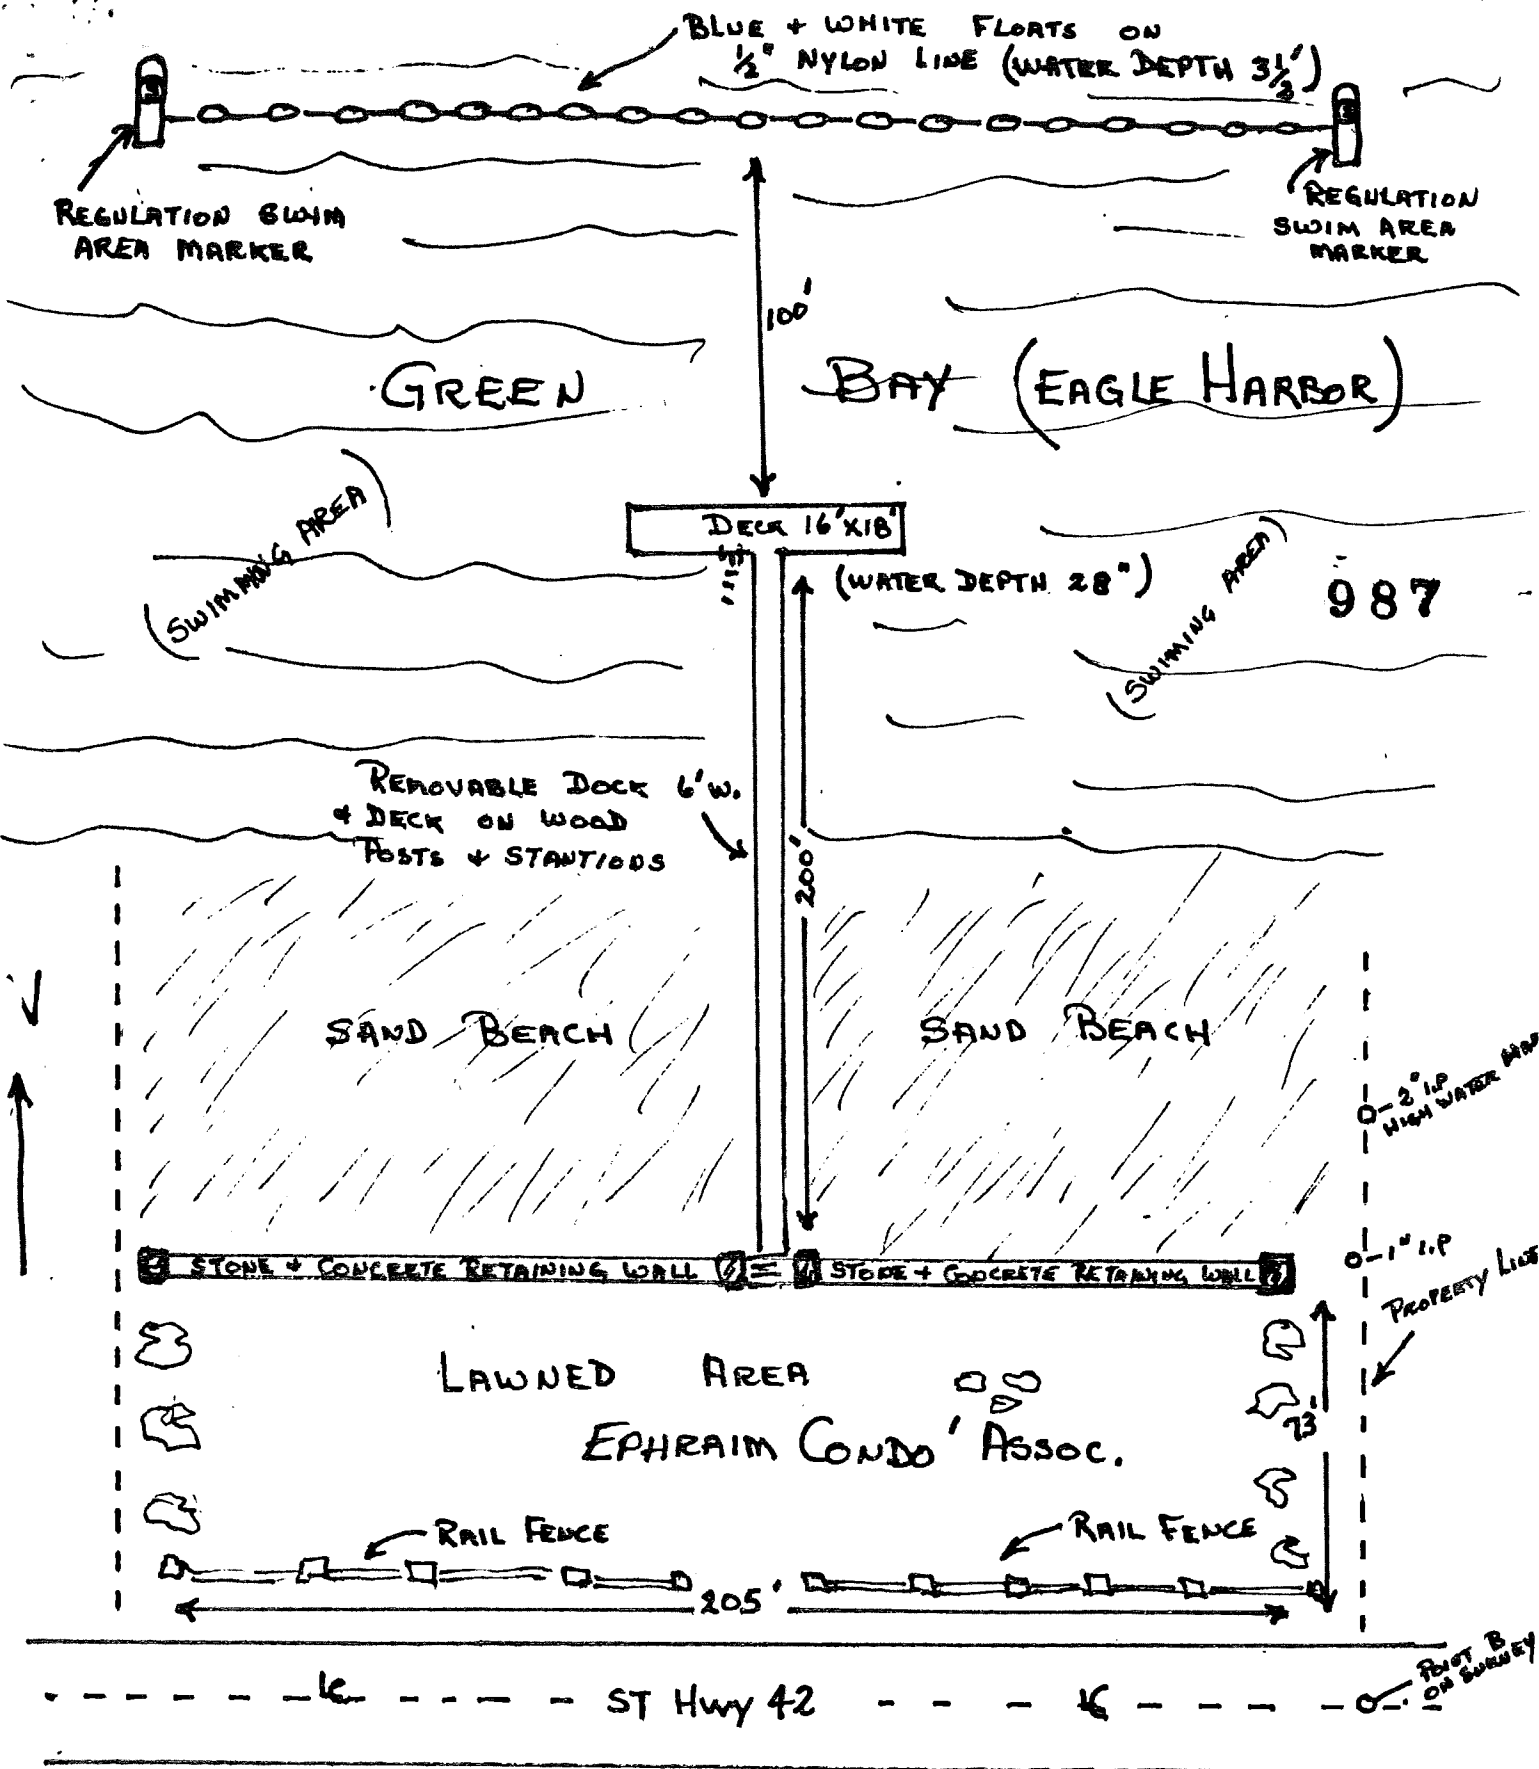 BLUE + WHITE FLOATS ON
½" NYLON LINE (WATER DEPTH 3½')
REGULATION SWIM
AREA MARKER
REGULATION
SWIM AREA
MARKER
100'
GREEN BAY (EAGLE HARBOR)
(SWIMMING AREA)
DECK 16'X18'
(WATER DEPTH 28")
(SWIMING AREA)
987
REMOVABLE DOCK 6'W.
+ DECK ON WOOD
POSTS + STANTIONS
200'
SAND BEACH
SAND BEACH
2" I.P
HIGH WATER
STONE + CONCRETE RETAINING WALL
STONE + CONCRETE RETAINING WALL
1" I.P
PROPERTY LINE
LAWNED AREA
EPHRAIM CONDO' ASSOC.
73'
RAIL FENCE
RAIL FENCE
205'
POINT B
ON SURVEY
ST HWY 42